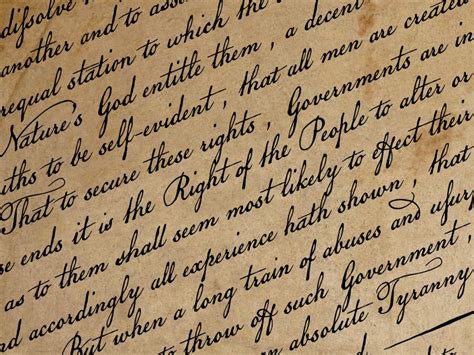 dissolve
another and to assu
equal station to which the
Nature's God entitle them, a decent
ths to be self-evident, that all men are created
That to secure these rights, Governments are in
e ends it is the Right of the People to alter or
as to them shall seem most likely to effect their
d accordingly all experience hath shown, that
But when a long train of abuses and usurp
to throw off such Government,
an absolute Tyranny